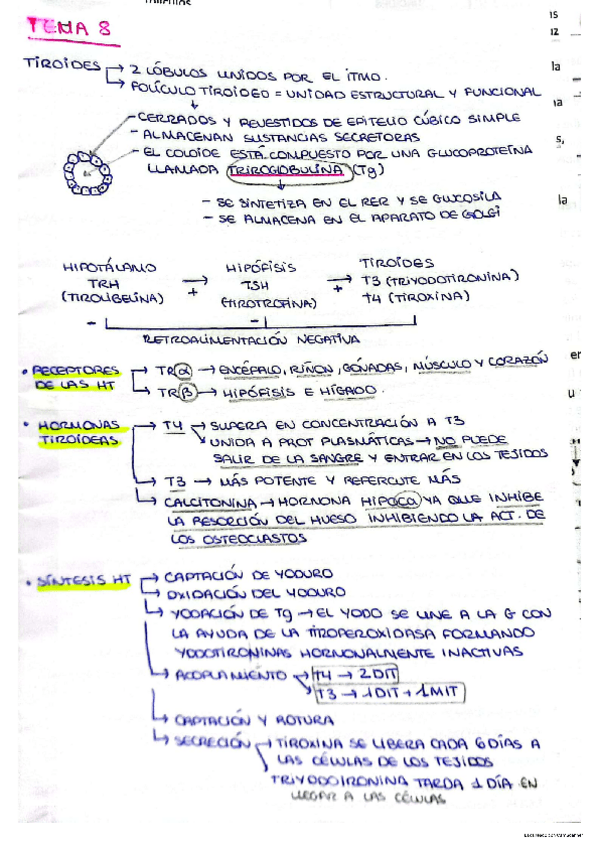 15
TEMA 8
12
TIROIDES → 2 LÓBULOS UNIDOS POR EL ITMO.
la
→ FOLÍCULO TIROIDEO = UNIDAD ESTRUCTURAL Y FUNCIONAL
ıa
- CERRADOS Y REVESTIDOS DE EPITELIO CÚBICO SIMPLE
- ALMACENAN SUSTANCIAS SECRETORAS
s,
- EL COLOIDE ESTÁ COMPUESTO POR UNA GLUCOPROTEÍNA
LLAMADA TRIROGLOBULINA (Tg)
- SE SINTETIZA EN EL RER Y SE GLICOSILA
la
- SE ALMACENA EN EL APARATO DE GOLGI
HIPOTÁLAMO → HIPÓFISIS → TIROIDES
TRH + TSH + T3 (TRIYODOTIRONINA)
(TIROLIBELINA) (TIROTROFINA) T4 (TIROXINA)
- -
RETROALIMENTACIÓN NEGATIVA
• RECEPTORES DE LAS HT → TRα → ENCÉFALO, RIÑON, GÓNADAS, MÚSCULO Y CORAZÓN
er
→ TRβ → HIPÓFISIS E HÍGADO.
u
• HORMONAS TIROIDEAS → T4 → SUPERA EN CONCENTRACIÓN A T3
UNIDA A PROT PLASMÁTICAS → NO PUEDE
SALIR DE LA SANGRE Y ENTRAR EN LOS TEJIDOS
→ T3 → MÁS POTENTE Y REPERCUTE MÁS
→ CALCITONINA → HORMONA HIPOCA YA QUE INHIBE
LA RESORCIÓN DEL HUESO INHIBIENDO LA ACT. DE
LOS OSTEOCLASTOS
• SÍNTESIS HT → CAPTACIÓN DE YODURO
→ OXIDACIÓN DEL YODURO
→ YODACIÓN DE Tg → EL YODO SE UNE A LA G CON
LA AYUDA DE LA TIROPEROXIDASA FORMANDO
YODOTIRONINAS HORMONALMENTE INACTIVAS
→ ACOPLAMIENTO → T4 → 2DIT
T3 → 1DIT + 1MIT
→ CAPTACIÓN Y ROTURA
→ SECRECIÓN → TIROXINA SE LIBERA CADA 6 DÍAS A
LAS CÉLULAS DE LOS TEJIDOS
TRIYODOIRONINA TARDA 1 DÍA EN
LLEGAR A LAS CÉLULAS